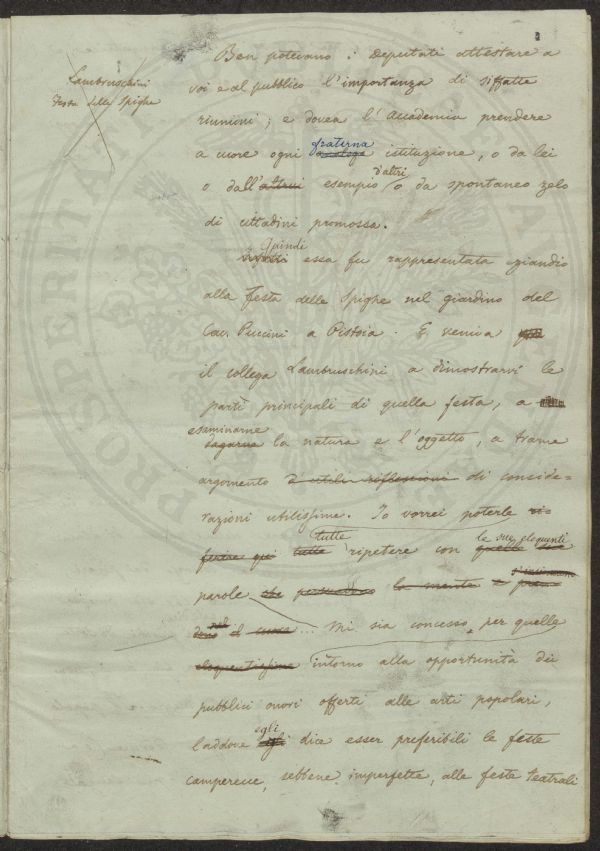 Lambruschini
Festa delle Spighe
Ben potevano i Deputati attestare a
voi e al pubblico l'importanza di siffatte
riunioni; e dovea l'Accademia prendere
fraterna
a cuore ogni analoga istituzione, o da lei
d'altri
o dall'altrui esempio o da spontaneo zelo
di cittadini promossa.
Quindi
Infatti essa fu rappresentata eziandio
alla festa delle Spighe nel giardino del
Cav. Puccini a Pistoia. E veniva
il collega Lambruschini a dimostrarvi le
parti principali di quella festa, a
esaminarne
la natura e l'oggetto, a trarne
argomento d'utili riflessioni di conside-
razioni utilissime. Io vorrei poterle ri-
tutte le sue eloquenti
ferire qui tutte ripetere con quelle sue
parole che persuadono la mente e
nel
il cuore... Mi sia concesso per quelle
eloquentissime intorno alla opportunità dei
pubblici onori offerti alle arti popolari,
egli
laddove egli dice esser preferibili le feste
camperecce, sebbene imperfette, alle feste teatrali
PROSPERITAT